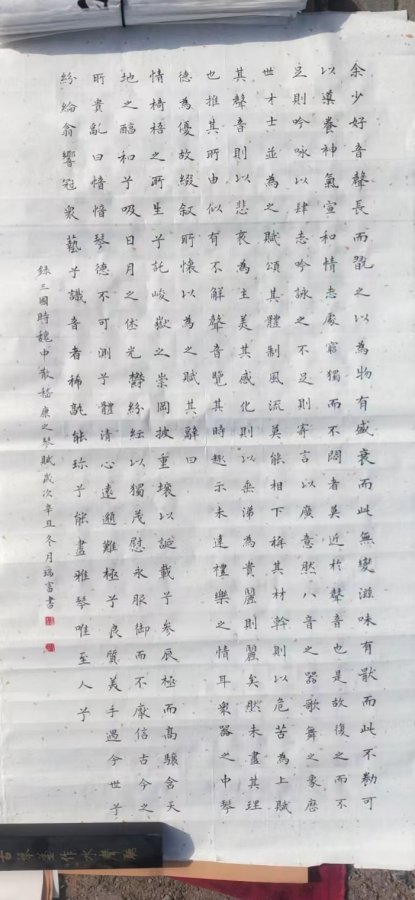 余少好音聲長而翫之以為物有盛衰而此無變滋味有猒而此不勌可
以導養神氣宣和情志處窮獨而不悶者莫近於聲音也是故復之而不
足則吟咏以肆志吟詠之不足則寄言以廣意然八音之器歌舞之象歷
世才士並為之賦頌其體制風流莫能相下稱其材幹則以危苦為上賦
其聲音則以悲哀為主美其感化則以垂涕為貴麗則麗矣然未盡其理
也推其所由似有不解聲音覽其時趣示未達禮樂之情耳衆器之中琴
德為優故綴叙所懷以為之賦其辭曰
情椅梧之所生兮託峻嶽之崇岡披重壤以誕載兮參辰極而高驤含天
地之醇和兮吸日月之休光鬱紛紜以獨茂慰永服御而不厭信古今之
所貴亂曰愔愔琴德不可測兮體清心遠邈難極兮良質美手遇今世兮
紛綸翕響冠衆藝兮識音者稀孰能珍兮能盡雅琴唯至人兮
録三國時魏中散嵇康之琴賦歲次辛丑冬月瑞富書